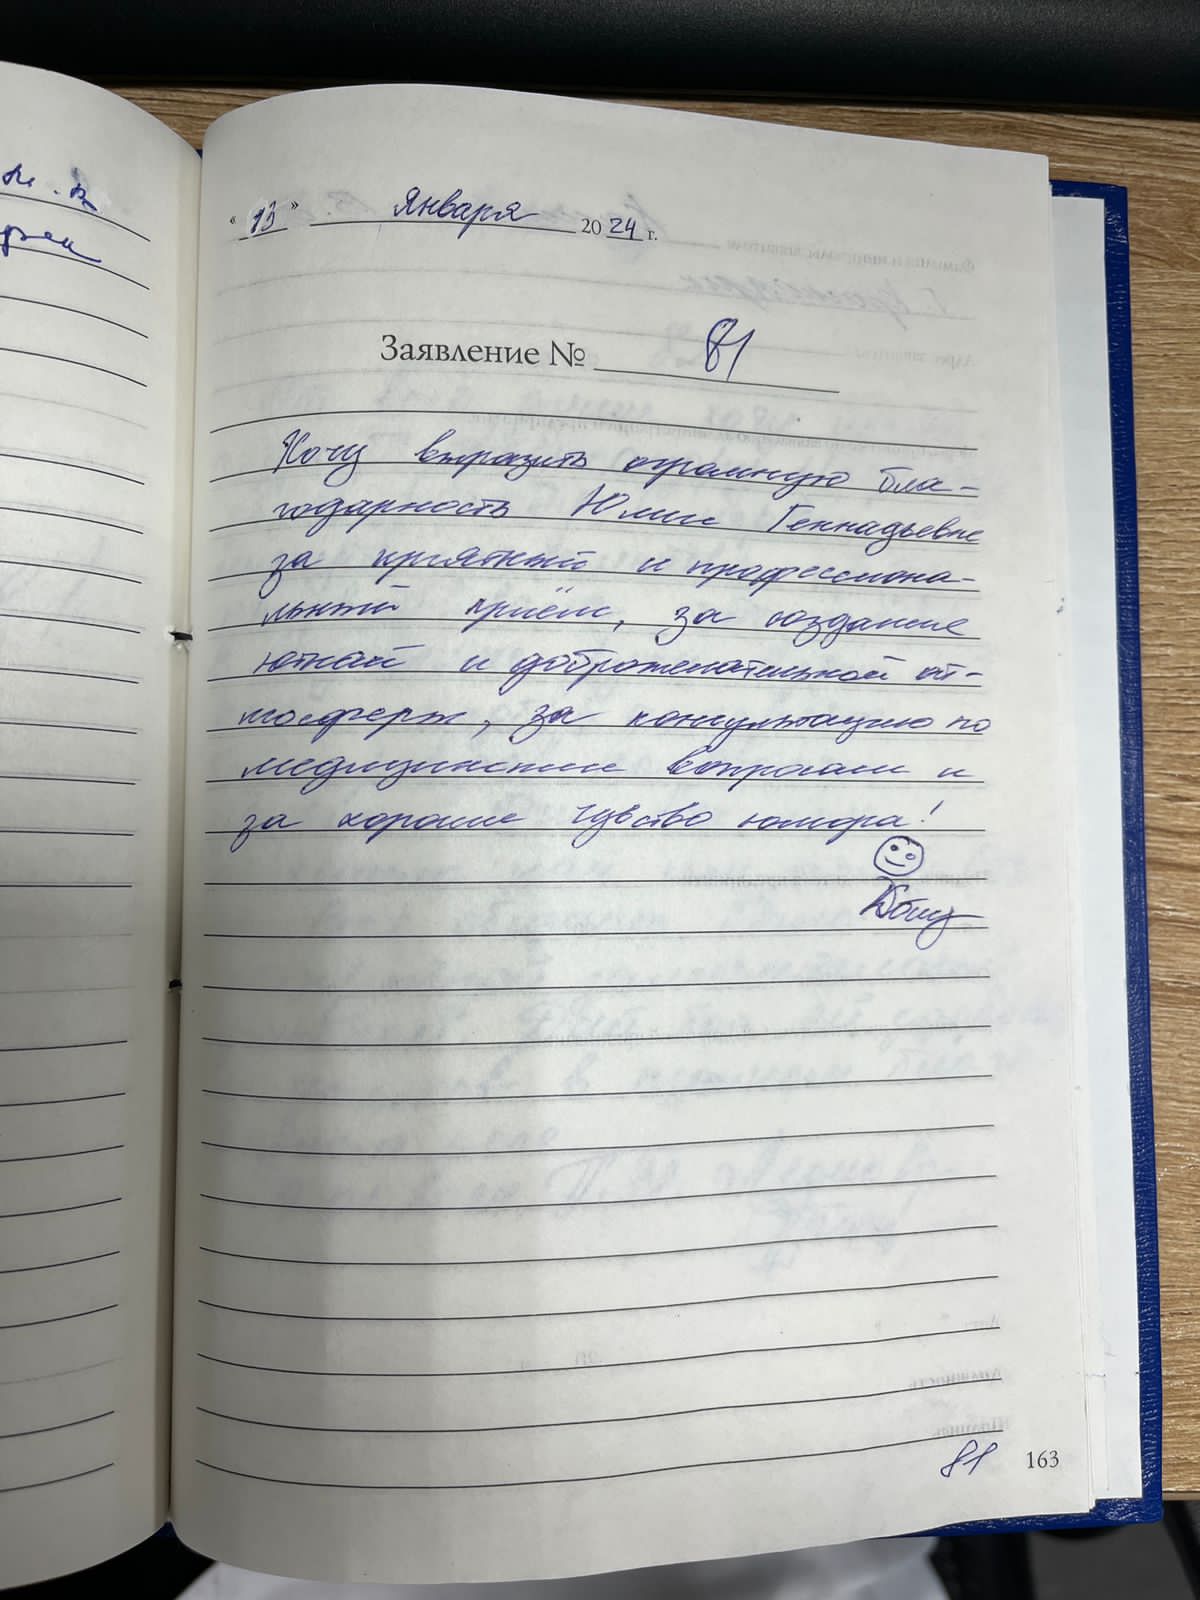 « 13 » Января 20 24 г.
Заявление № 81
Хочу выразить огромную бла-
годарность Юлии Геннадьевне
за приятный и профессиона-
льный приём, за создание
ютной и доброжелательной ат-
мосферы, за консультацию по
медицинским вопросам и
за хорошее чувство юмора!
81 163